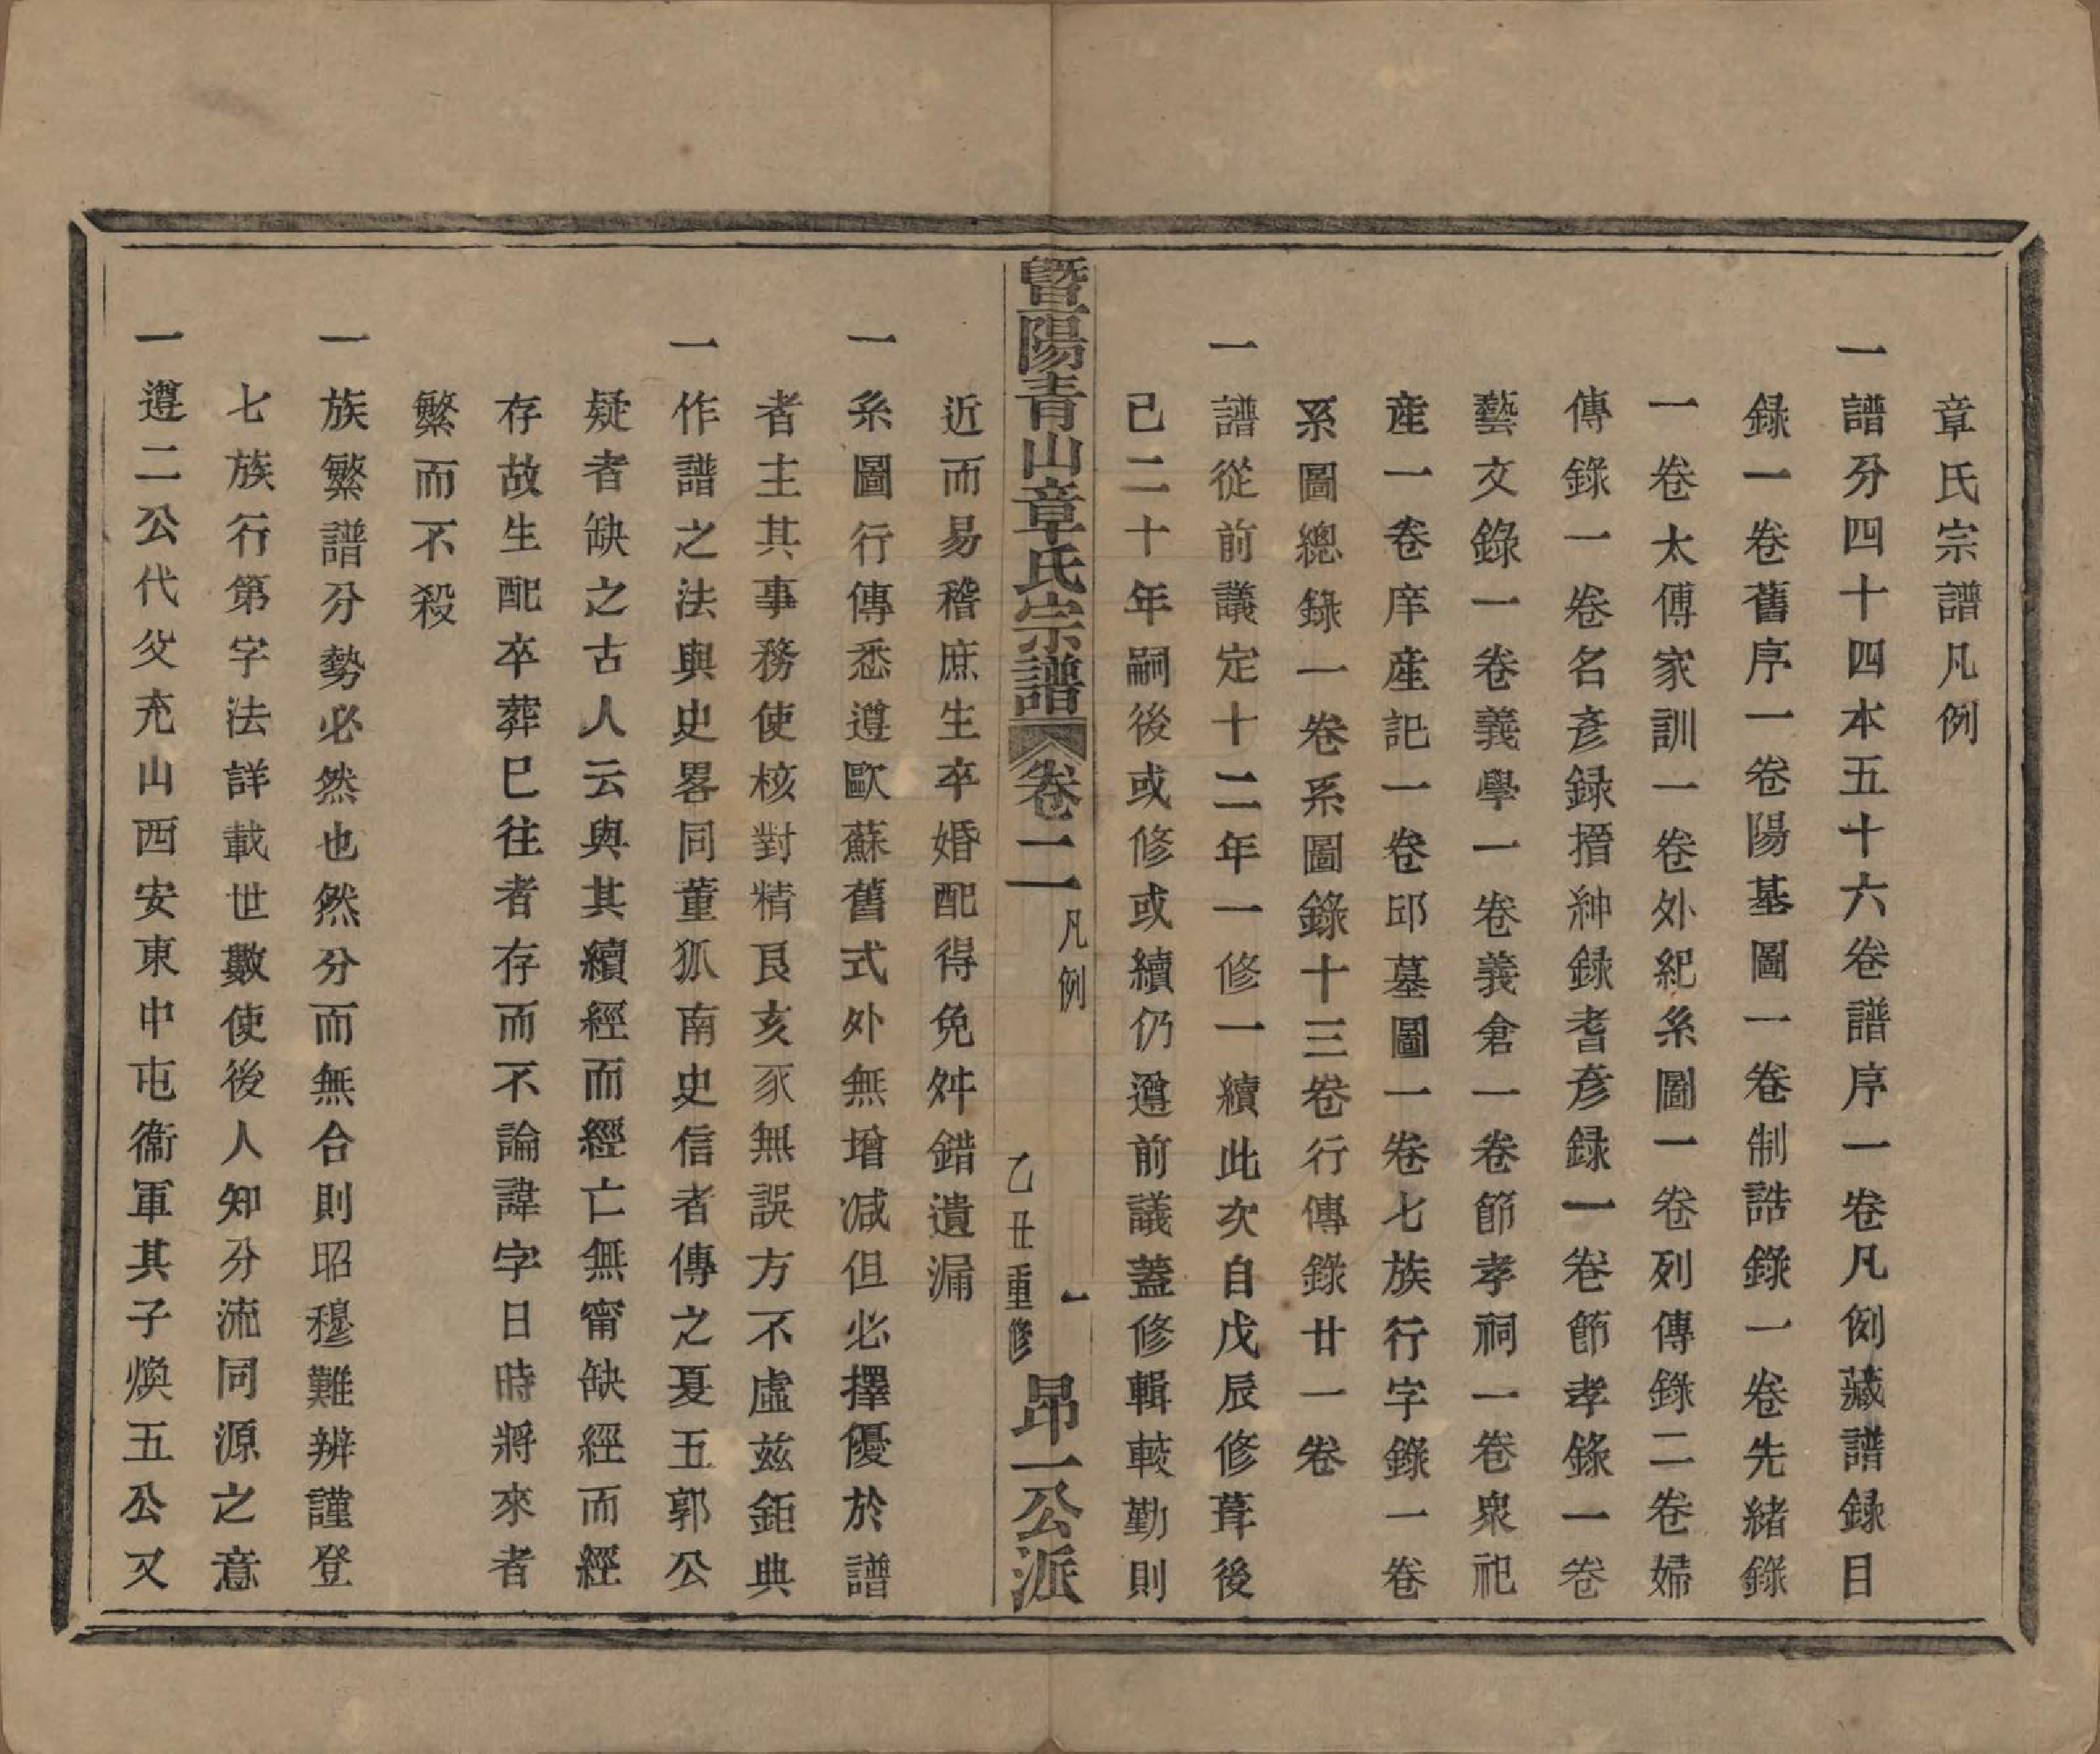 章氏宗譜凡例
一譜分四十四本五十六卷譜序一卷凡例藏譜錄目
錄一卷舊序一卷陽基圖一卷制誥錄一卷先緒錄
一卷太傅家訓一卷外紀系圖一卷列傳錄二卷婦
傳錄一卷名彥錄搢紳錄耆彥錄一卷節孝錄一卷
藝文錄一卷義學一卷義倉一卷節孝祠一卷衆祀
產一卷庠產記一卷邱墓圖一卷七族行字錄一卷
系圖總錄一卷系圖錄十三卷行傳錄廿一卷
一譜從前議定十二年一修一續此次自戊辰修葺後
已二十年嗣後或修或續仍遵前議葢修輯較勤則
暨陽青山章氏宗譜 卷二 凡例 一 乙丑重修 昂一公派
近而易稽庶生卒婚配得免舛錯遺漏
一系圖行傳悉遵歐蘇舊式外無增減但必擇優於譜
者主其事務使核對精良亥豕無誤方不虛茲鉅典
一作譜之法與史畧同董狐南史信者傳之夏五郭公
疑者缺之古人云與其續經而經亡無甯缺經而經
存故生配卒葬已往者存而不論諱字日時將來者
繁而不殺
一族繁譜分勢必然也然分而無合則昭穆難辨謹登
七族行第字法詳載世數使後人知分流同源之意
一遵二公代父充山西安東中屯衞軍其子煥五公又